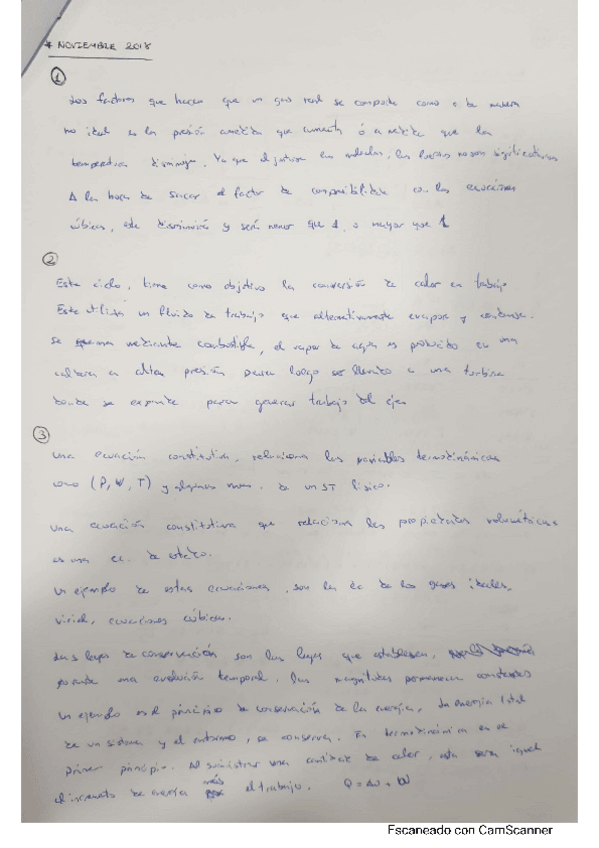 * NOVIEMBRE 2018
1
Los factores que hacen que un gas real se comporte como o de manera
no ideal es la presión a medida que aumenta ó a medida que la
temperatura disminuye. Ya que al juntarse las moléculas, las fuerzas no son significativas
A la hora de sacar el factor de compresibilidad con las ecuaciones
cúbicas, este disminuirá y será menor que 1, o mayor que 1
2
Este ciclo, tiene como objetivo la conversión de calor en trabajo
Este utiliza un fluido de trabajo que alternativamente evapora y condensa.
Se quema mediante combustible, el vapor de agua es producido en una
caldera en altas presión para luego ser llevado a una turbina
donde se expande para generar trabajo el eje
3
Una ecuación constitutiva, relaciona las variables termodinámicas
como (P, V, T) y algunas de un ST físico.
Una ecuación constitutiva que relaciona las propiedades volumétricas
es una ec. de estado.
Un ejemplo de estas ecuaciones, son la éc de los gases ideales,
virial, ecuaciones cúbicas.
Las leyes de conservación son las leyes que establecen,
una evolución temporal. las magnitudes permanecen constantes
Un ejemplo es el principio de conservación de la energía, la energía total
de un sistema y el entorno, se conserva. En termodinámica es el
primer principio. Al suministrar una cantidad de calor, esta sera igual
al incremento de energía más el trabajo. Q = ΔU + W
Escaneado con CamScanner